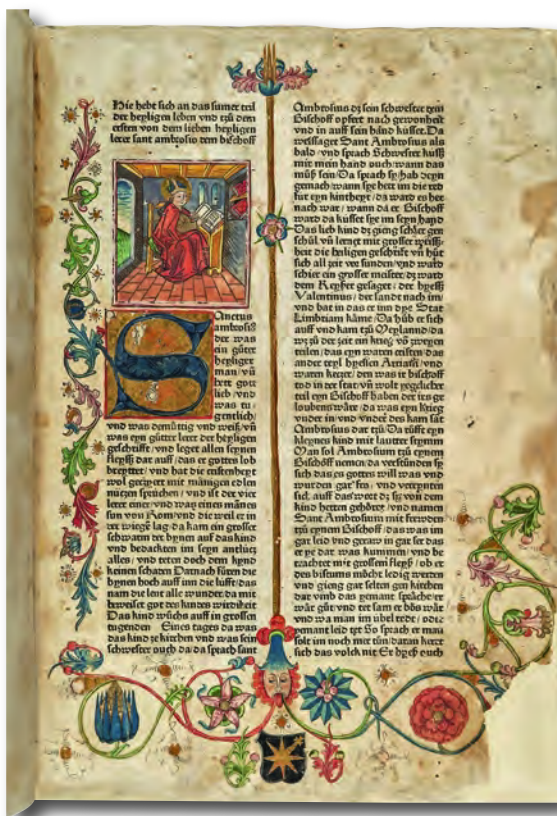 Hie hebt sich an das sumer teil
der heyligen leben vnd tzů dem
ersten von dem lieben heyligen
lerer sant ambrosio dem bischoff
Sanctus
ambrosiꝰ
der was
ein gůter
heyliger
man / vñ
hett got
lieb / vnd
was tu
gentlich /
vnd was demůttig vnd weiß / vñ
was eyn gůtter lerer der heyligen
geschrifft / vnd leget allen seynen
fleyß dar auff / das er gotten lob
vnd hat die cristenheyt
wol gezyert mit mänigen edlen
nüczen sprüchen / vnd ist der vier
lerer einer / vnd was eines mänes
sun von Rom / vnd die weil er in
der wiegē lag / da kam ein grosser
schwarm der bynen auf das kind
vnd bedackten im seyn antlücz
alles / vnd teten doch dem kynd
keinen schaden Darnach fůren die
bynen hoch auff inn die lufft / das
nam die leüt alle wunder / da mit
beweiset got des kindes wirdikeit
Das kind wůchs auff in grossen
tugenden Eines tages da was
das kind ze kirchen vnd was sein
schwester ouch da / da sprach sant
Ambrosius dz sein schwester dem
Bischoff opfert nach gewonheit
vnd in auff sein händ küsset. Da
weissaget Sant Ambrosius als
bald / vnd sprach Schwester kuß
mir mein hand ouch / wann das
můß sein / Da sprach sy / hab deyn
gemach / wann sye hett im die red
fur eyn kintheyt / da ward es her
nach war / wann da er Bischoff
ward da küsset sye im seyn hand
Das lieb kind dz gieng schier gen
schůl / vñ lernet mit grosser weiß
heit die heiligen geschrifft vñ hůt
sich all zeit vor sunden / vnd ward
schier ein grosser meister / dz ward
dem Keyser gesaget / der hyeß
Valentinus / der sandt nach im /
vnd bat in das er inn dye Stat
Limbriam käme / Da hůb er sich
auff vnd kam tzů Meylannd / da
wz zů der zeit ein krieg / vō zweyen
teilen / das eyn waren cristen / das
ander teyl hyessen Arriani / vnd
waren keczer / den was ir bischoff
tod in der stat / vñ wolt yegclicher
teil eyn Bischoff haben der ires ge
loubens wäre / da was eyn krieg
vnder in / vnd vnder des kam sāt
Ambrosius dar tzů / Da rüfft eyn
kleynes kind mit lautter stymm
Man sol Ambrosium tzů eynem
Bischöff nemen / da verstůnden sy
sich das es gottes will was vnd
wurden gar fro / vnd vereynten
sich auff das wort dz sy von dem
kind hetten gehöret / vnd namen
Sant Ambrosium mit frewden
tzů eynem Bischoff / das was im
gar leid vnd geraw in gar ser das
er ye dar was kummen / vnd be
trachtet mit grossem fleyß / ob er
des bistums möcht ledig werden
vnd gieng gar selten gen kirchen
dar vmb das yemant spräche / er
wär gůt / vnd tet sam er böß wär
vnd wa man im übel redt / oder
yemant leid tet So sprach er man
solt im noch mer tůn / daran keret
sich das volck nit Er hyeß ouch